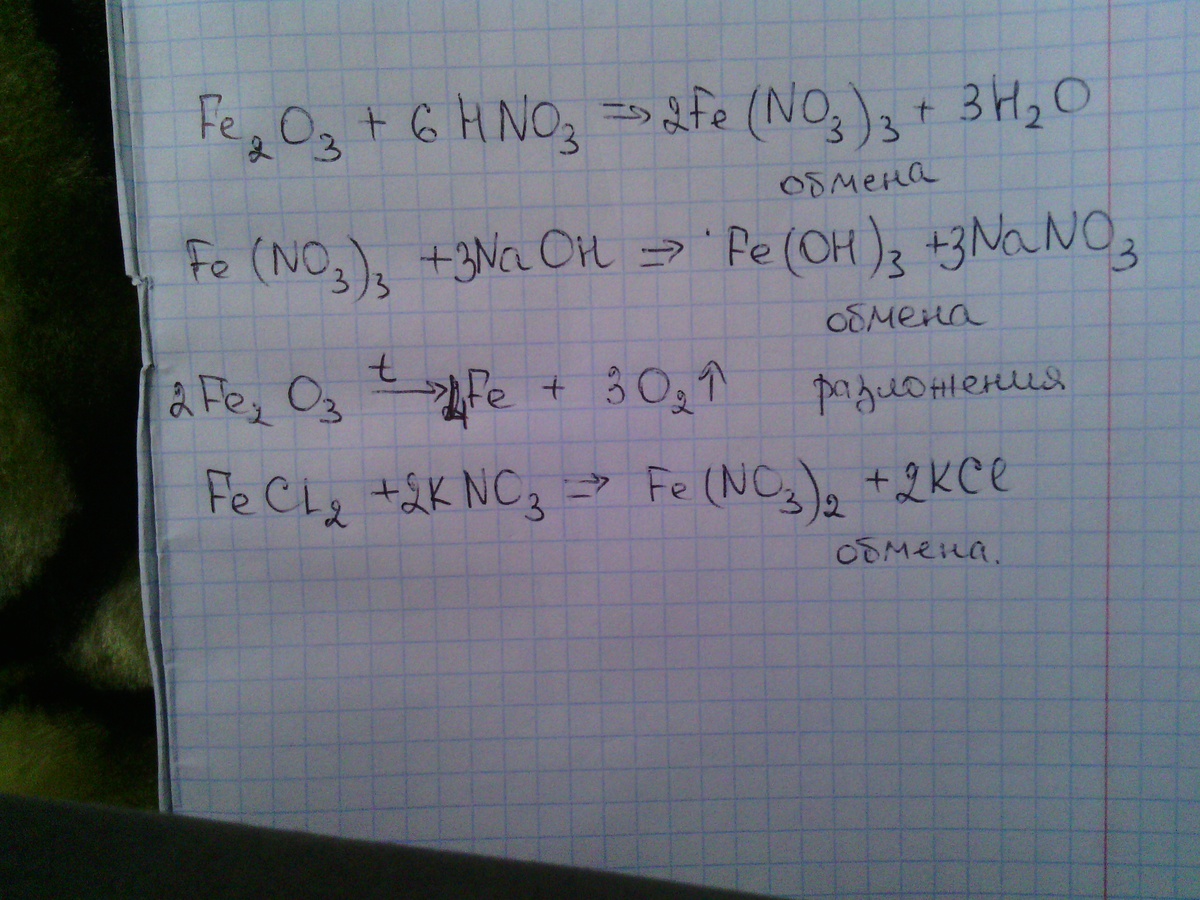 Fe₂O₃ + 6HNO₃ ⇒ 2Fe(NO₃)₃ + 3H₂O
обмена
Fe(NO₃)₃ + 3NaOH ⇒ Fe(OH)₃ + 3NaNO₃
обмена
2Fe₂O₃ t→ 4Fe + 3O₂↑ разложения
FeCl₂ + 2KNO₃ ⇒ Fe(NO₃)₂ + 2KCl
обмена.